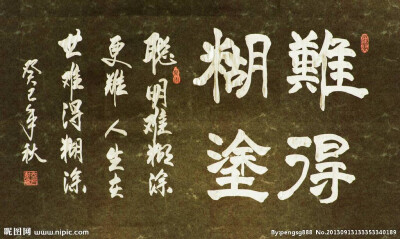 難得
糊塗
聪明难糊涂
更难人生在
世难得糊涂
癸巳年秋
昵图网 www.nipic.com
By:pengsg888 No.20150915133353340189